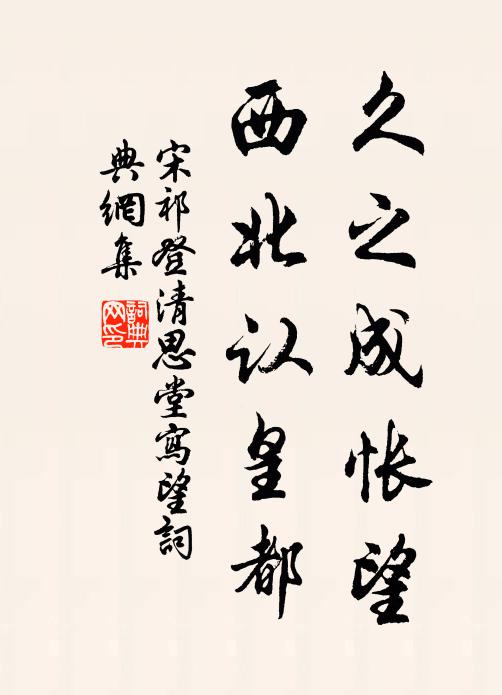 久之成怅望
西北认皇都
宋祁登清思堂寫望詞
典網集
詞典
网印